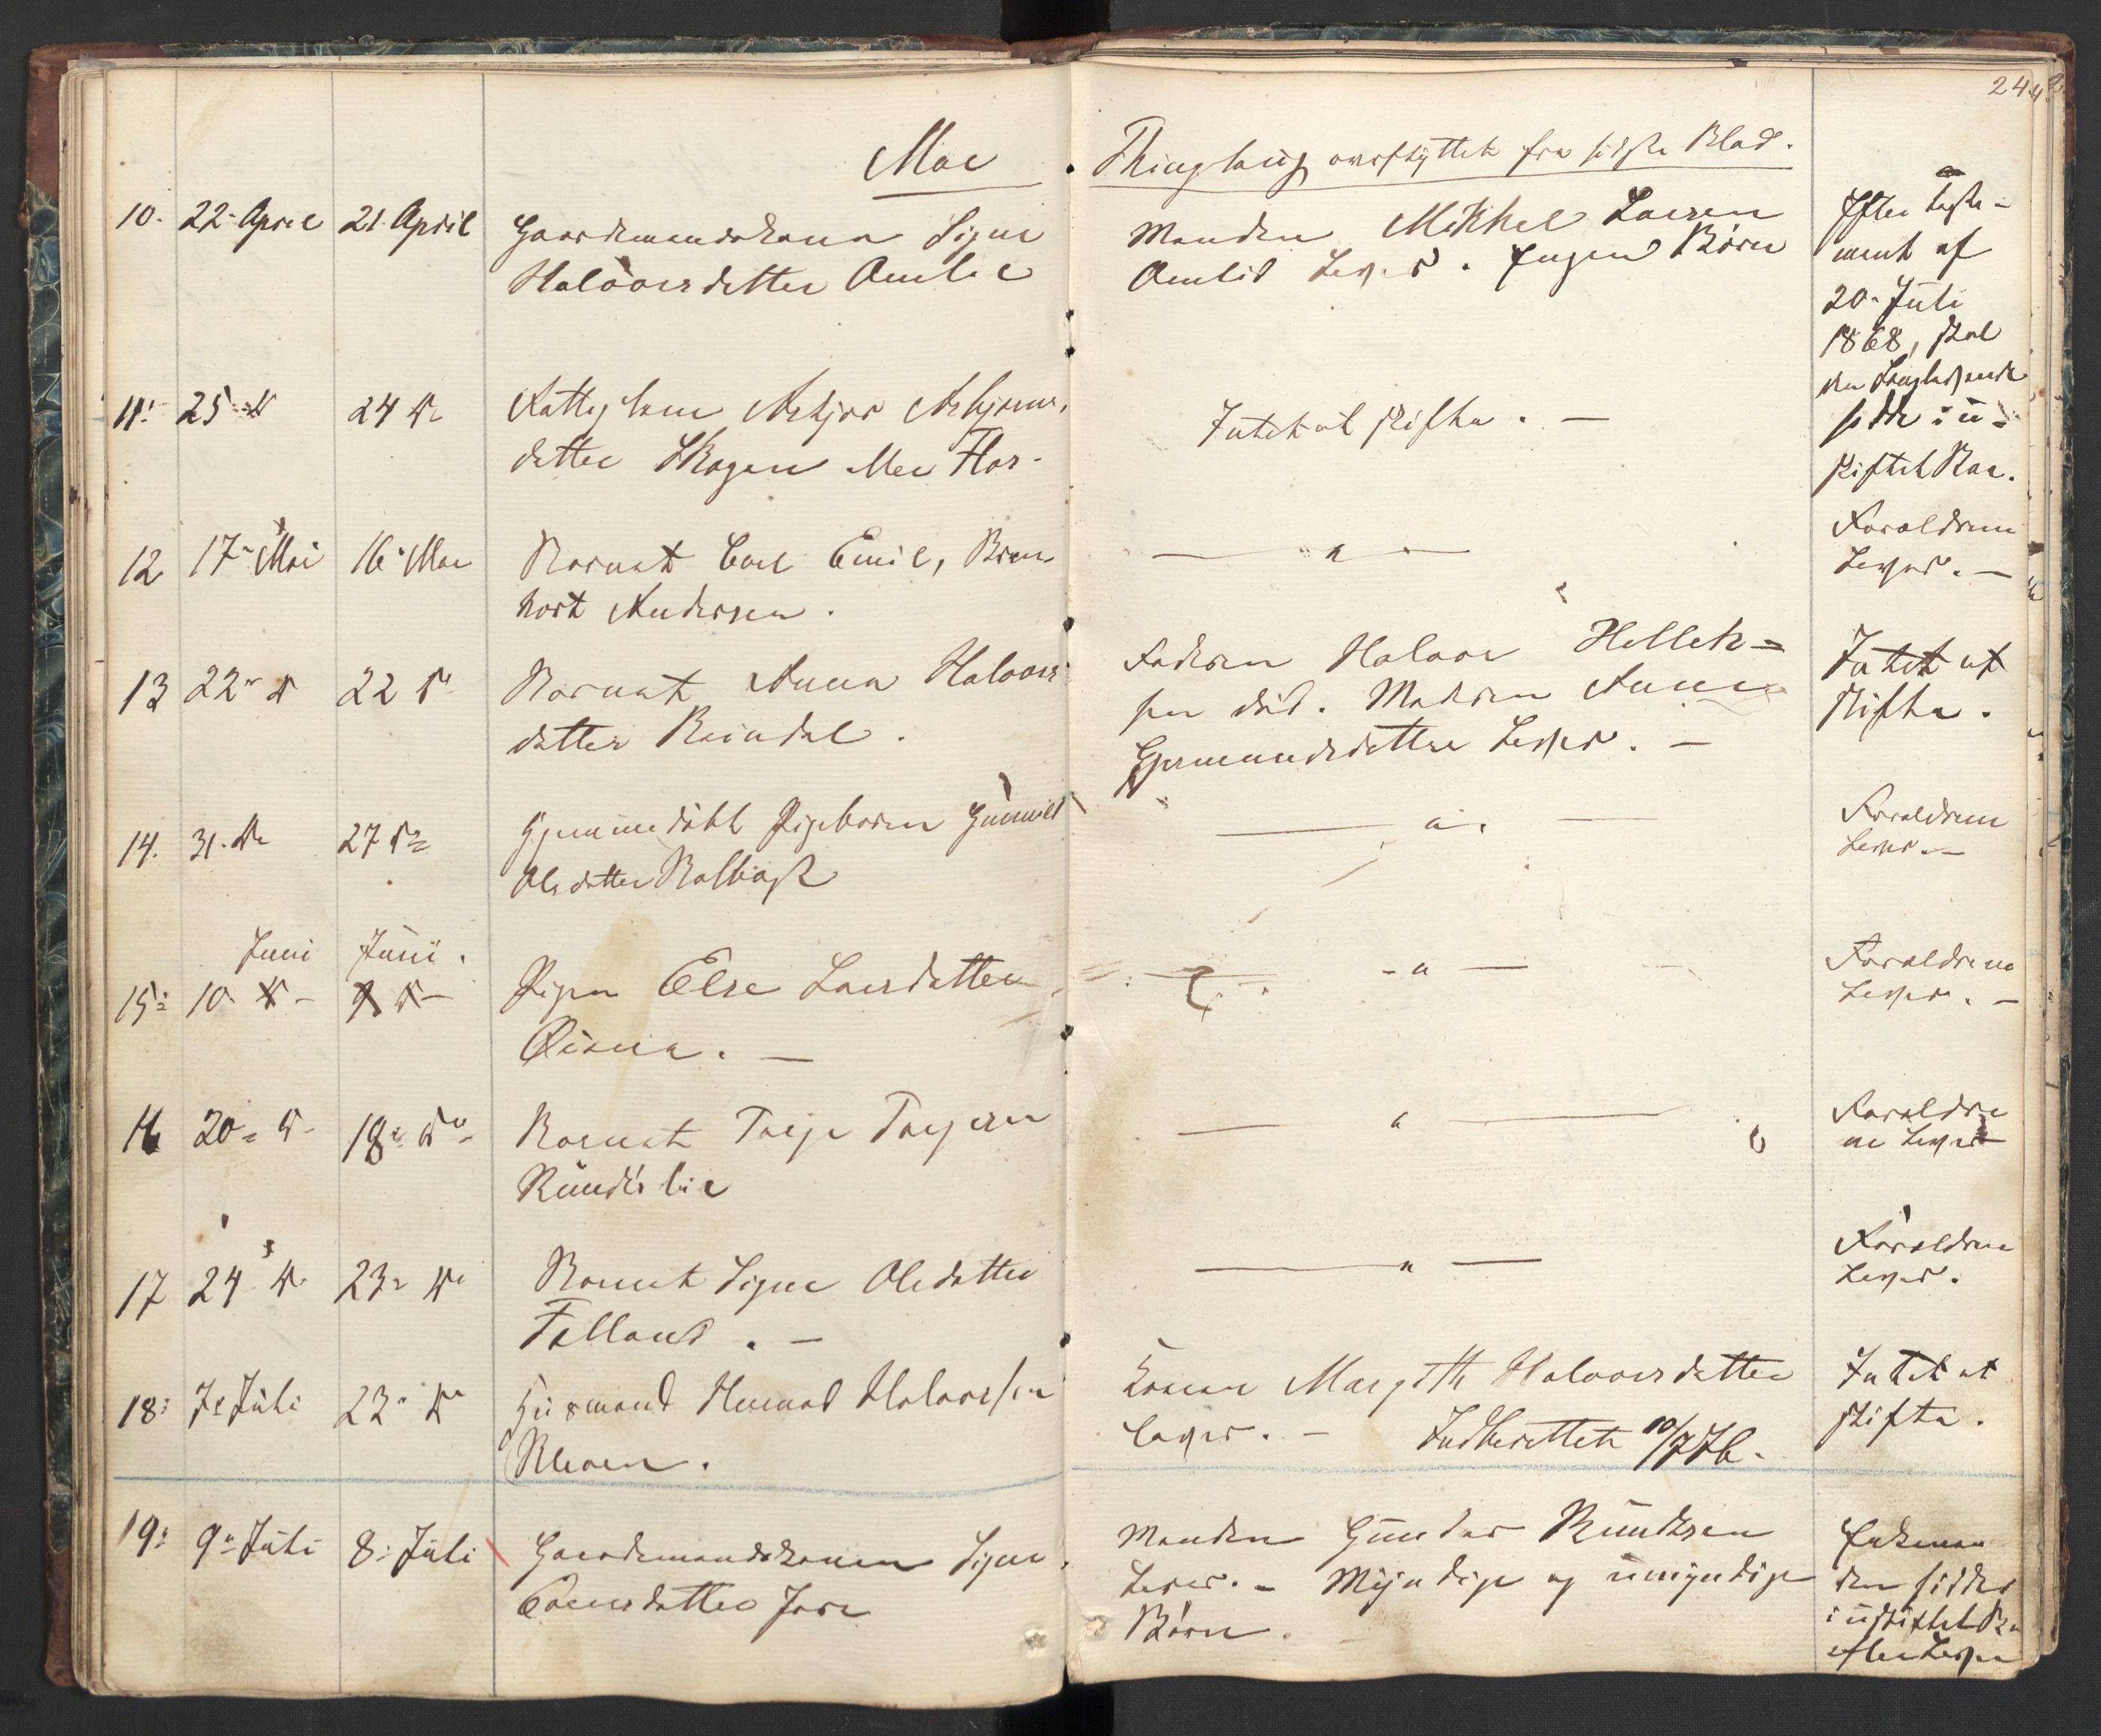 244
Moe Thinglaug overflyttet fra sidste Blad.
10. 22. April 21. April Gaardmandskone Signe
Halvorsdatter Omlie
Manden Mikkel Larsen
Omlid Lever. Ingen Børn
Efter Testa-
ment af
20. Juli
1868, skal
den Længstlevende
sidde i u-
skiftet Boe.
11. 25 do 24 do Fattiglem Asbjør Asbjørns-
datter Skogen Mee Flor.
Intet at skifte. —
12 17 Mai 16 Mai Barnet Carl Emil, Bern-
hort Andersen.
— " —
Forældrene
Lever. —
13 22 do 22 do Barnet Anna Halvors
datter Reindal.
Faderen Halvor Hellek-
sen död. Moderen Anne
Gjermundsdatter Lever. —
Intet at
skifte.
14. 31. do 27 do Hjemmedöbt Pigebarn Gunnild
Olsdatter
— " —
Forældrene
Lever. —
15 Juni Juni.
10 do 9 do Pigen Else Larsdatter
— " —
Forældrene
Lever. —
16 20 do 18 do Barnet Terje Terjesen
— " —
Forældre
ne Lever
17 24 do 23 do Barnet Signe Olsdatter
Felland. —
— " —
Forældrene
Lever.
18 7 Juli 23 do Husmand Halvorsen
Kleven.
Konen Margith Halvorsdatter
lever. — Indberettet 10/7 76.
Intet at
skifte.
19 9 Juli 8 Juli Gaardmandskonen Signe
Manden Gunder Knudsen
Lever. — Myndige og umyndige
Børn.
Enkeman
den sidder
i uskiftet Bo